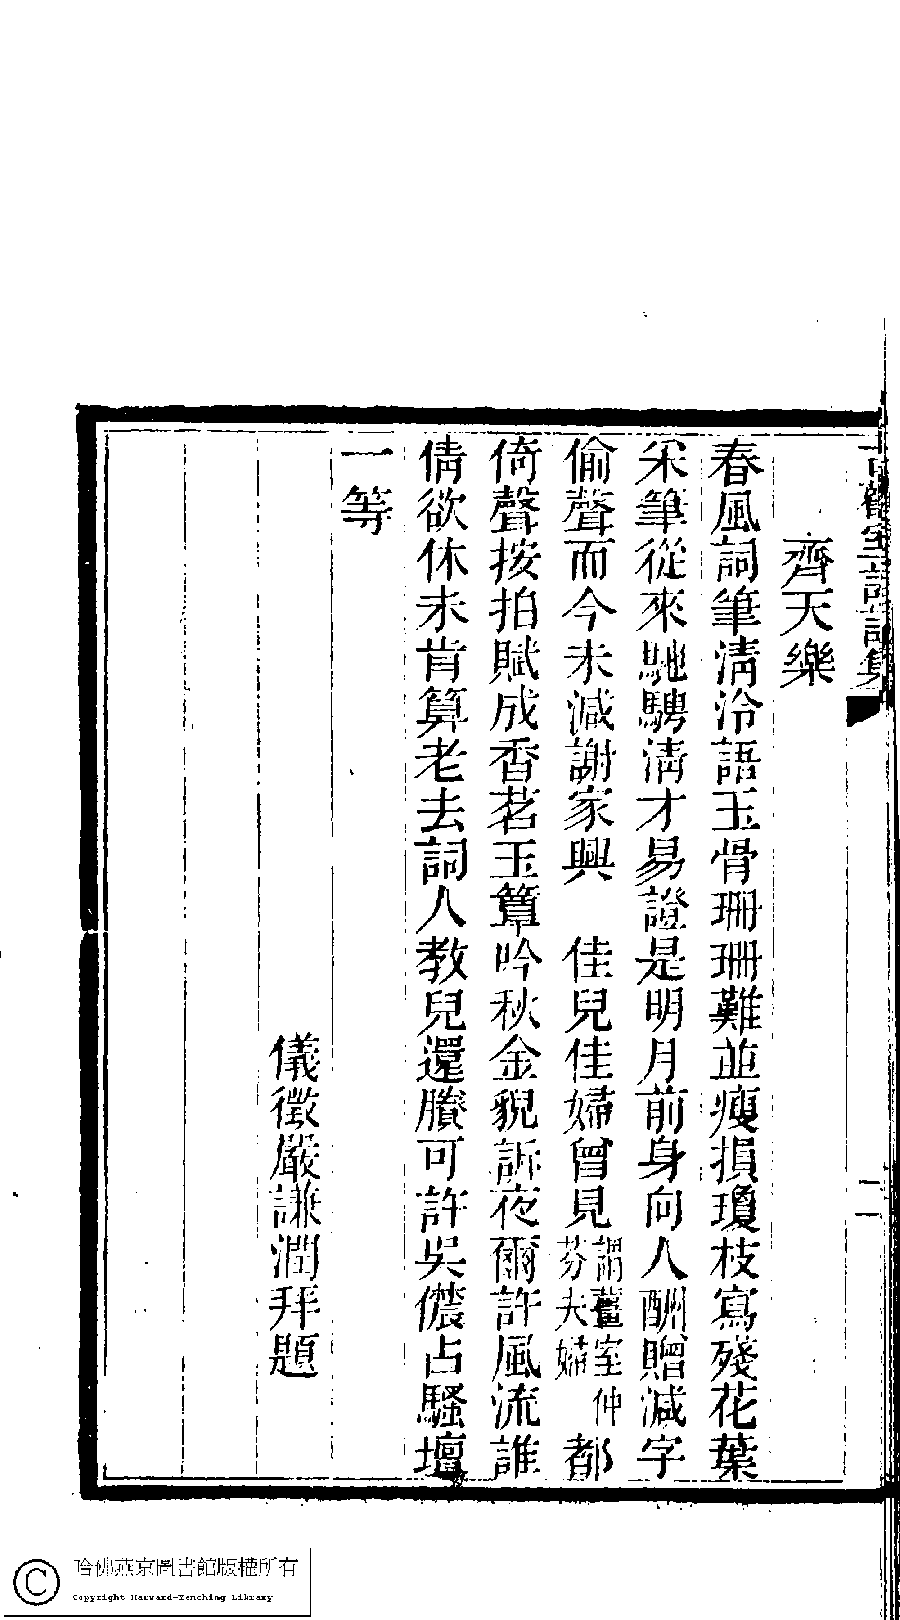 古歡室詩詞集
二
齊天樂
春風詞筆清泠語玉骨珊珊難並瘦損瓊枝寫殘花葉
采筆從來馳騁清才易證是明月前身向人酬贈減字
偷聲而今未減謝家興　佳兒佳婦曾見謂室仲芬夫婦都
倚聲按拍賦成香茗玉簟吟秋金猊訴夜爾許風流誰
倩欲休未肯算老去詞人教兒還賸可許吳儂占騷壇
一等
儀徵嚴謙潤拜題
哈佛燕京圖書館版權所有
Copyright Harvard-Yenching Library